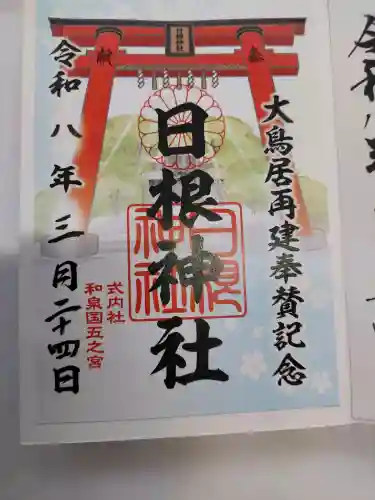 奉
献
日根神社
大鳥居再建奉賛記念
日根神社
日根
神社
式内社
和泉国五之宮
令和八年三月二十四日